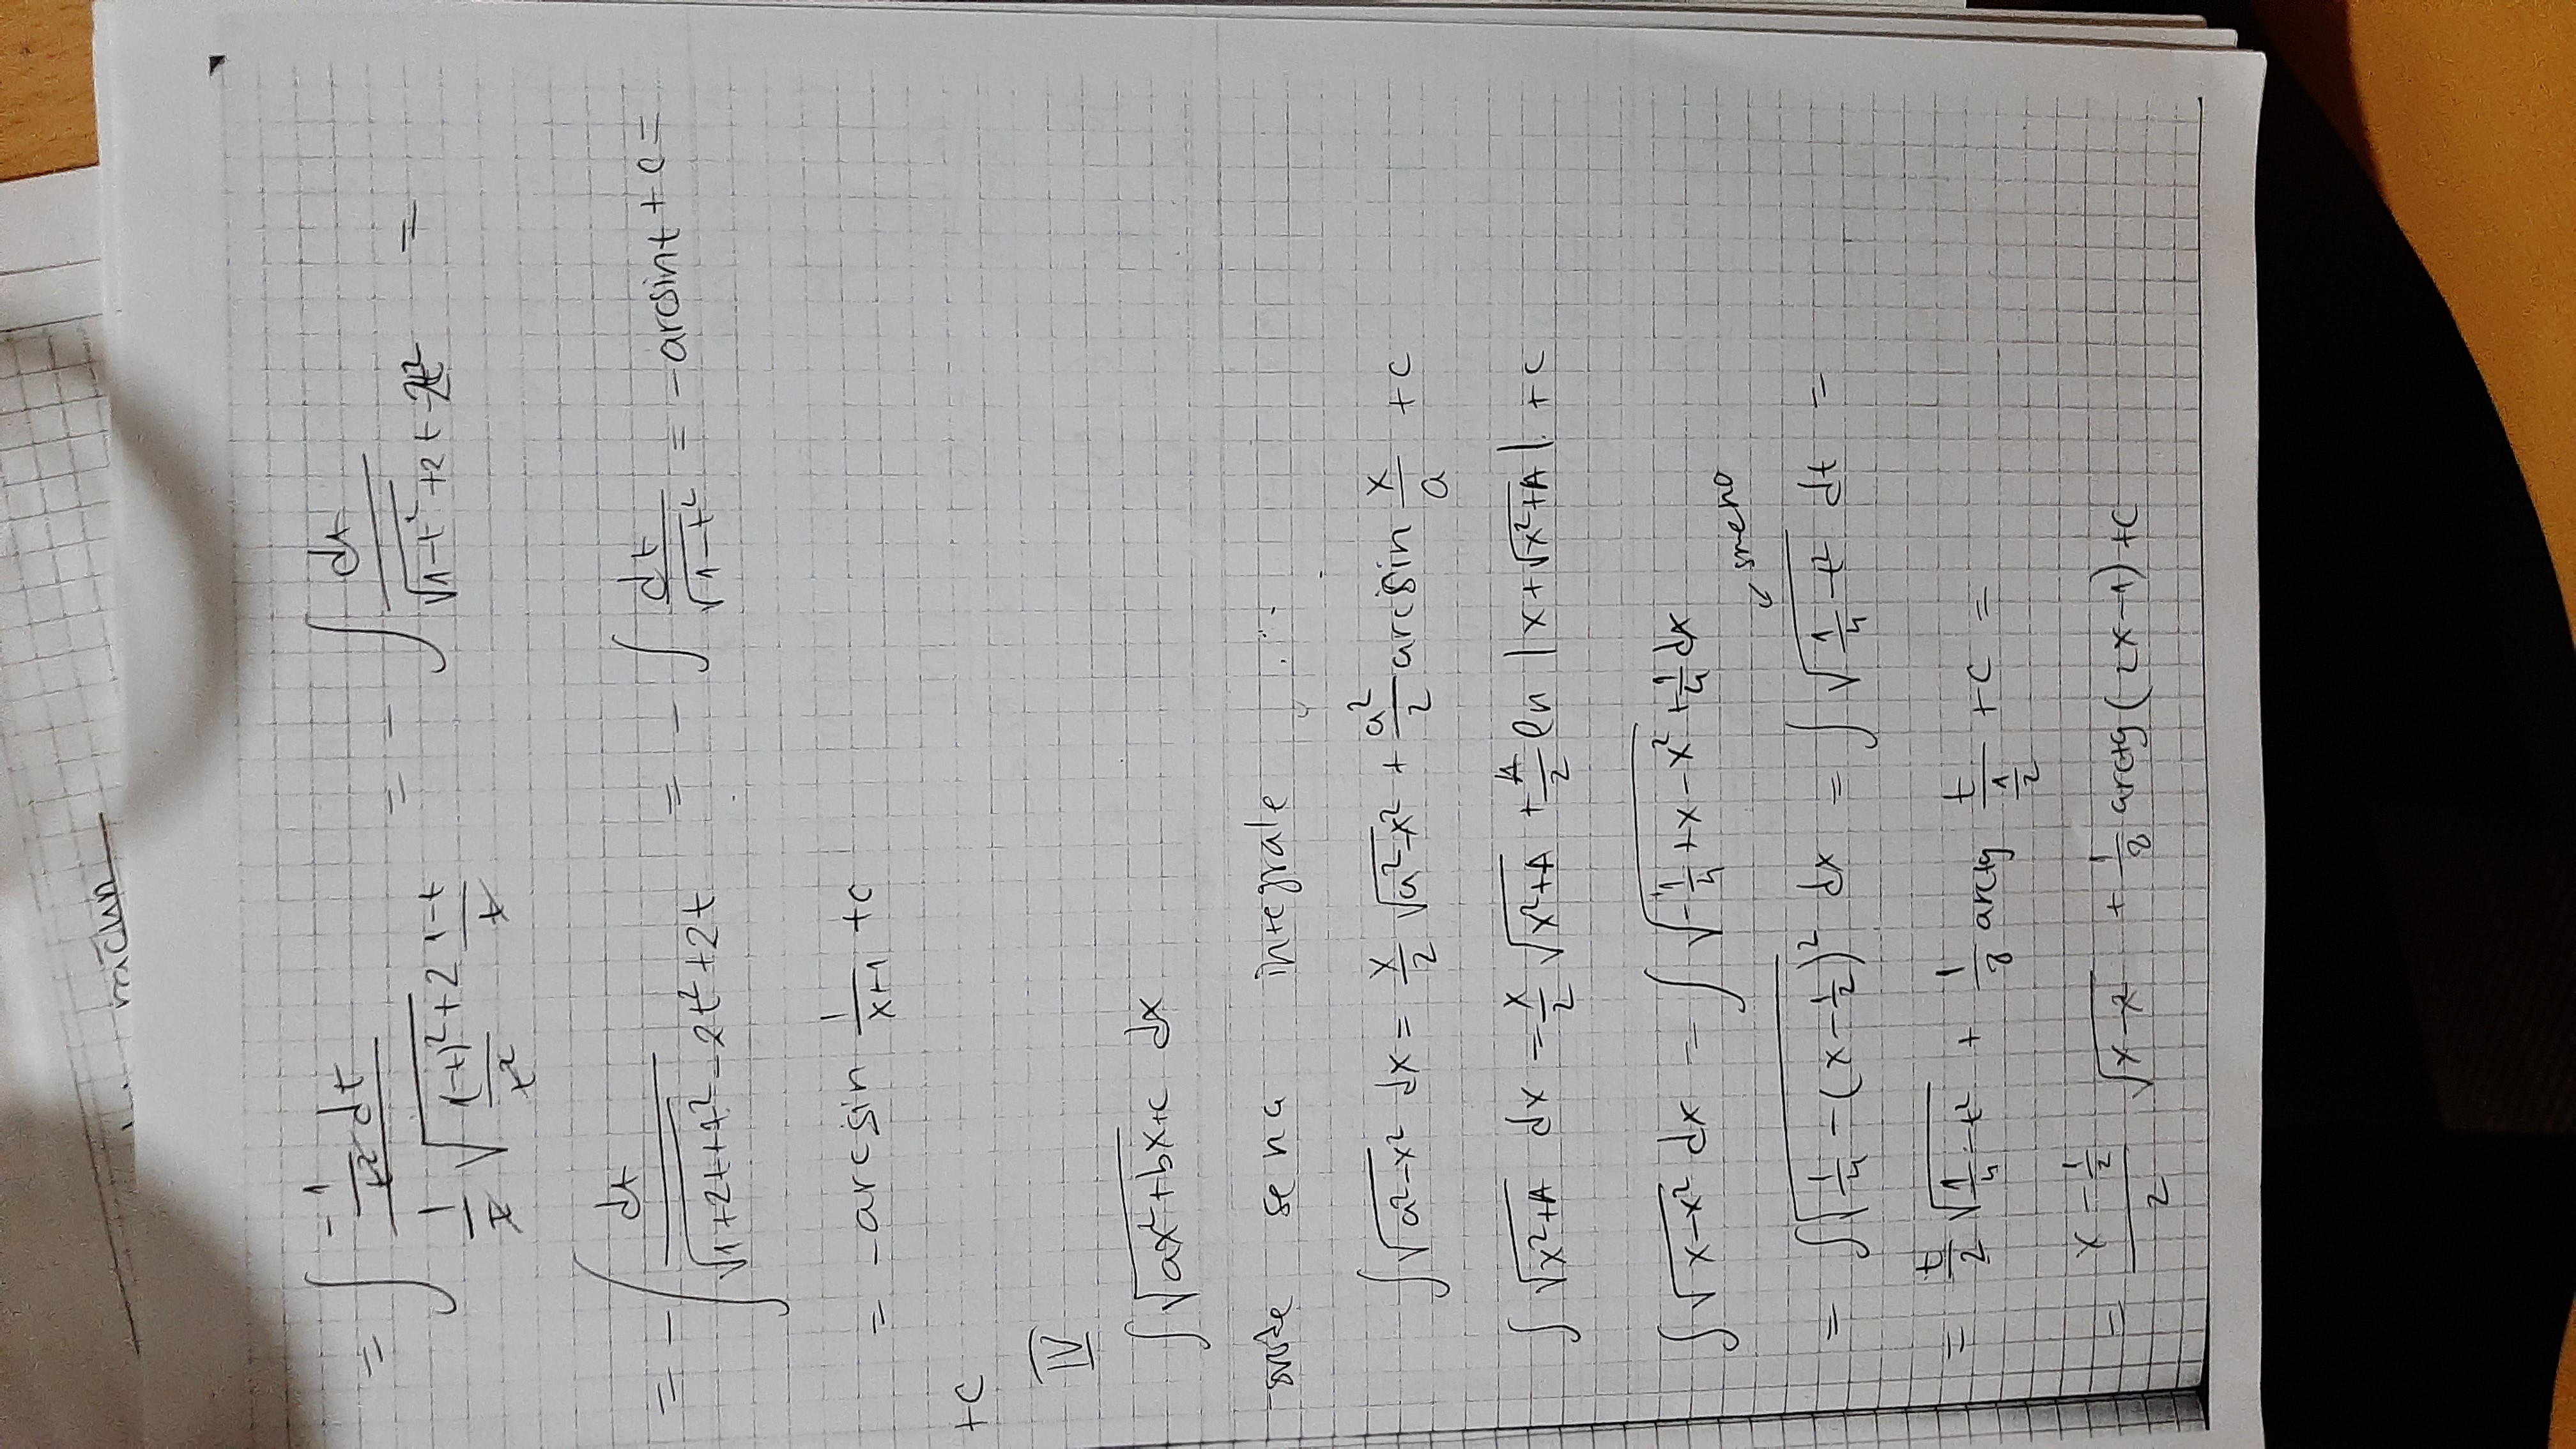 račun
= ∫ (-1/t² dt) / (1/t √((1-t)²/t² + 2 (1-t)/t)) = - ∫ dt / √(1-t² + 2t - 2t²) =
= - ∫ dt / √(1+2t+t² - 2t² + 2t) = - ∫ dt / √(1-t²) = -arcsin t + c =
= -arcsin 1/(x+1) + c
+c
IV
∫ √(ax²+bx+c) dx
svode se na integrale ...
∫ √(a²-x²) dx = x/2 √(a²-x²) + a²/2 arcsin x/a + c
∫ √(x²+A) dx = x/2 √(x²+A) + A/2 ln |x+√(x²+A)| + c
∫ √(x-x²) dx = ∫ √(-1/4 + x - x² + 1/4) dx
↙ smena
= ∫ √(1/4 - (x-1/2)²) dx = ∫ √(1/4 - t²) dt =
= t/2 √(1/4 - t²) + 1/8 arctg t/(1/2) + c =
= (x - 1/2)/2 √(x-x²) + 1/8 arctg (2x-1) + c